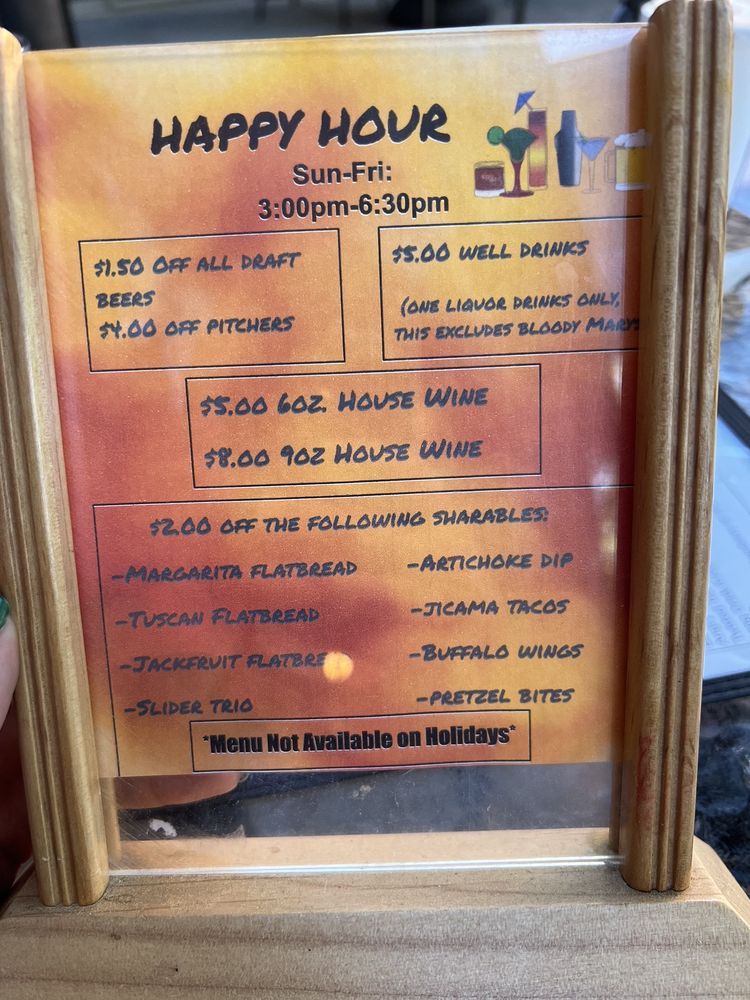 HAPPY HOUR
Sun-Fri:
3:00pm-6:30pm
$1.50 OFF ALL DRAFT
BEERS
$4.00 OFF PITCHERS
$5.00 WELL DRINKS
(ONE LIQUOR DRINKS ONLY,
THIS EXCLUDES BLOODY MARYS
$5.00 6OZ. HOUSE WINE
$8.00 9OZ HOUSE WINE
$2.00 OFF THE FOLLOWING SHARABLES:
-MARGARITA FLATBREAD
-TUSCAN FLATBREAD
-JACKFRUIT FLATBRE
-SLIDER TRIO
-ARTICHOKE DIP
-JICAMA TACOS
-BUFFALO WINGS
-PRETZEL BITES
*Menu Not Available on Holidays*